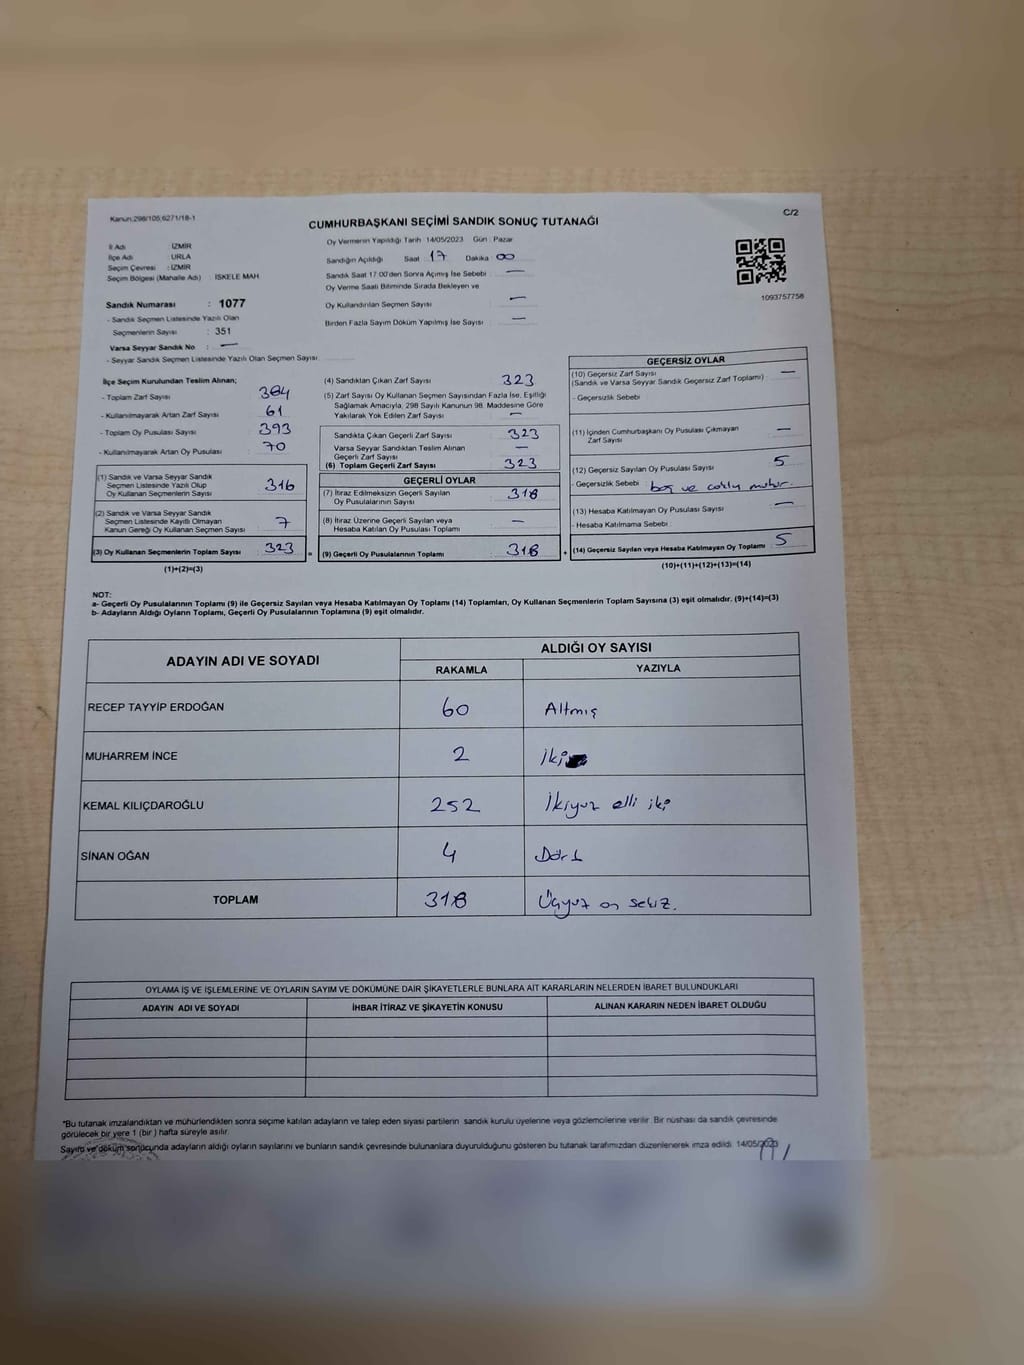 Kanun:298/105;6271/18-1
CUMHURBAŞKANI SEÇİMİ SANDIK SONUÇ TUTANAĞI
C/2
İl Adı İZMİR
İlçe Adı URLA
Seçim Çevresi : İZMİR
Seçim Bölgesi (Mahalle Adı) İSKELE MAH
Sandık Numarası : 1077
- Sandık Seçmen Listesinde Yazılı Olan
Seçmenlerin Sayısı : 351
Varsa Seyyar Sandık No : —
- Seyyar Sandık Seçmen Listesinde Yazılı Olan Seçmen Sayısı
Oy Vermenin Yapıldığı Tarih 14/05/2023 Gün : Pazar
Sandığın Açıldığı Saat 17 Dakika 00
Sandık Saat 17:00'den Sonra Açılmış İse Sebebi —
Oy Verme Saati Bitiminde Sırada Bekleyen ve
Oy Kullandırılan Seçmen Sayısı —
Birden Fazla Sayım Döküm Yapılmış İse Sayısı —
1093757758
İlçe Seçim Kurulundan Teslim Alınan;
- Toplam Zarf Sayısı 384
- Kullanılmayarak Artan Zarf Sayısı 61
- Toplam Oy Pusulası Sayısı 393
- Kullanılmayarak Artan Oy Pusulası 70
(1) Sandık ve Varsa Seyyar Sandık
Seçmen Listesinde Yazılı Olup
Oy Kullanan Seçmenlerin Sayısı 316
(2) Sandık ve Varsa Seyyar Sandık
Seçmen Listesinde Kayıtlı Olmayan
Kanun Gereği Oy Kullanan Seçmen Sayısı 7
(3) Oy Kullanan Seçmenlerin Toplam Sayısı 323
(1)+(2)=(3)
(4) Sandıktan Çıkan Zarf Sayısı 323
(5) Zarf Sayısı Oy Kullanan Seçmen Sayısından Fazla İse, Eşitliği
Sağlamak Amacıyla, 298 Sayılı Kanunun 98. Maddesine Göre
Yakılarak Yok Edilen Zarf Sayısı —
Sandıkta Çıkan Geçerli Zarf Sayısı 323
Varsa Seyyar Sandıktan Teslim Alınan
Geçerli Zarf Sayısı —
(6) Toplam Geçerli Zarf Sayısı 323
GEÇERLİ OYLAR
(7) İtiraz Edilmeksizin Geçerli Sayılan
Oy Pusulalarının Sayısı 318
(8) İtiraz Üzerine Geçerli Sayılan veya
Hesaba Katılan Oy Pusulası Toplamı —
= (9) Geçerli Oy Pusulalarının Toplamı 318
GEÇERSİZ OYLAR
(10) Geçersiz Zarf Sayısı —
(Sandık ve Varsa Seyyar Sandık Geçersiz Zarf Toplamı)
- Geçersizlik Sebebi
(11) İçinden Cumhurbaşkanı Oy Pusulası Çıkmayan
Zarf Sayısı —
(12) Geçersiz Sayılan Oy Pusulası Sayısı 5
- Geçersizlik Sebebi boş ve çoklu mühür.
(13) Hesaba Katılmayan Oy Pusulası Sayısı —
- Hesaba Katılmama Sebebi
+ (14) Geçersiz Sayılan veya Hesaba Katılmayan Oy Toplamı 5
(10)+(11)+(12)+(13)=(14)
NOT:
a- Geçerli Oy Pusulalarının Toplamı (9) ile Geçersiz Sayılan veya Hesaba Katılmayan Oy Toplamı (14) Toplamları, Oy Kullanan Seçmenlerin Toplam Sayısına (3) eşit olmalıdır. (9)+(14)=(3)
b- Adayların Aldığı Oyların Toplamı, Geçerli Oy Pusulalarının Toplamına (9) eşit olmalıdır.
ADAYIN ADI VE SOYADI ALDIĞI OY SAYISI
RAKAMLA YAZIYLA
RECEP TAYYİP ERDOĞAN 60 Altmış
MUHARREM İNCE 2 İki
KEMAL KILIÇDAROĞLU 252 İkiyüz elli iki
SİNAN OĞAN 4 Dört
TOPLAM 318 Üçyüz on sekiz.
OYLAMA İŞ VE İŞLEMLERİNE VE OYLARIN SAYIM VE DÖKÜMÜNE DAİR ŞİKAYETLERLE BUNLARA AİT KARARLARIN NELERDEN İBARET BULUNDUKLARI
ADAYIN ADI VE SOYADI İHBAR İTİRAZ VE ŞİKAYETİN KONUSU ALINAN KARARIN NEDEN İBARET OLDUĞU
*Bu tutanak imzalandıktan ve mühürlendikten sonra seçime katılan adayların ve talep eden siyasi partilerin sandık kurulu üyelerine veya gözlemcilerine verilir. Bir nüshası da sandık çevresinde
görülecek bir yere 1 (bir) hafta süreyle asılır.
Sayım ve döküm sonucunda adayların aldığı oyların sayılarını ve bunların sandık çevresinde bulunanlara duyurulduğunu gösteren bu tutanak tarafımızdan düzenlenerek imza edildi. 14/05/2023